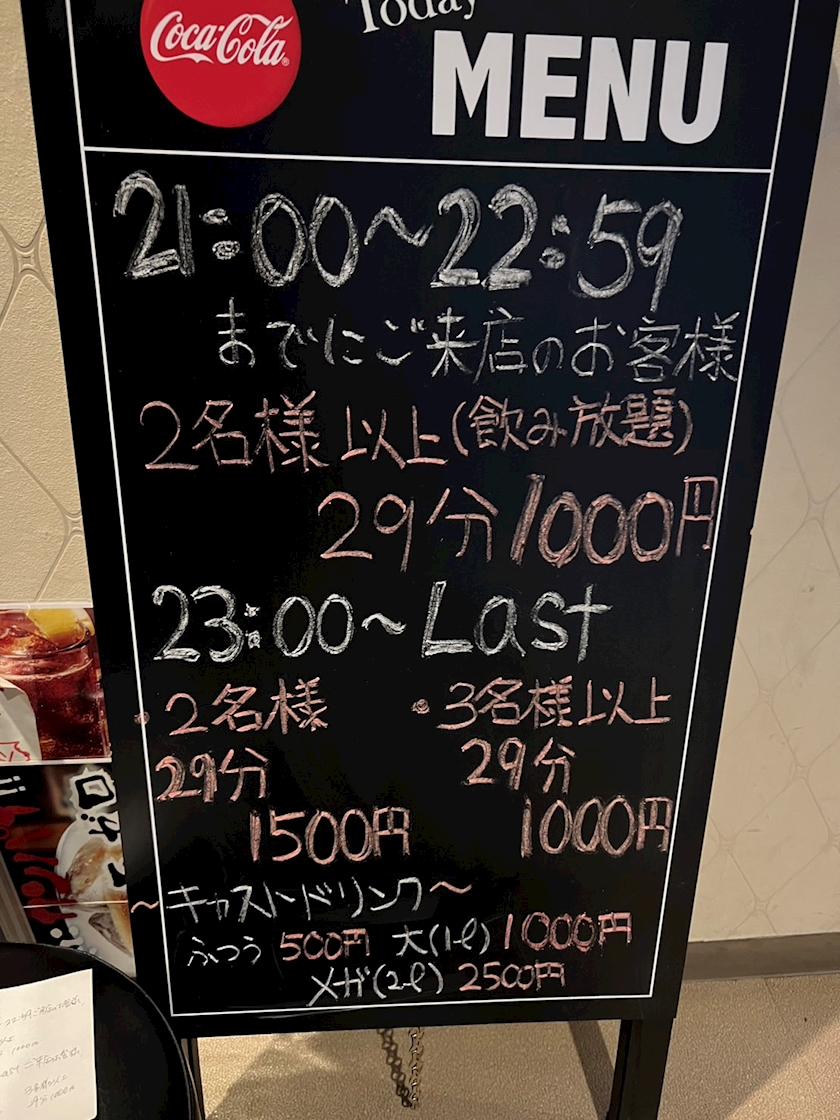 Coca-Cola
Today
MENU
21:00〜22:59
までにご来店のお客様
2名様以上(飲み放題)
29分1000円
23:00〜Last
・2名様
29分
1500円
・3名様以上
29分
1000円
〜キャストドリンク〜
ふつう 500円 大(1ℓ) 1000円
メガ(2ℓ) 2500円